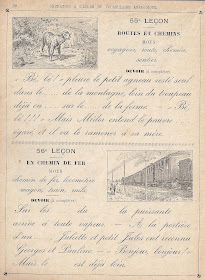 55e LEÇON
ROUTES ET CHEMINS
MOTS
voyageur, route, chemin,
sentier
DEVOIR (à compléter)
- Bê! bê! - pleure le petit agneau resté seul
dans le ... de la montagne, loin du troupeau
déjà en ... sur le ... de la ferme. - Bê
bê!!! - Mais Médor entend le pauvre
égaré et il va le ramener à sa mère.
56e LEÇON
EN CHEMIN DE FER
MOTS
chemin de fer, locomotive
wagon, train, voile
DEVOIR (à compléter)
Sur les ... du ... la puissante
arrive à toute vapeur. - A la portière
d'un ... Juliette et petit Jules ont reconnu
Georges et Pauline. - Bonjour, bonjour!
Mais le ... est déjà loin.